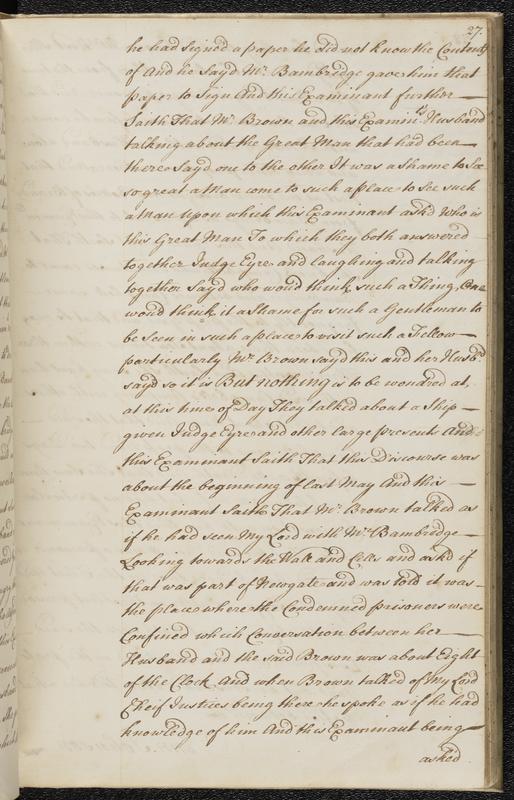 27.
he had signed a paper he did not know the Contents
of And he Sayd Mr. Bambridge gave him that
paper to Sign And this Examinant further
Saith That Mr. Brown and this Examin:ts Husband
talking about the Great Man that had been
there Sayd one to the other It was a Shame to See
so great a Man come to such a place to See such
a Man upon which this Examinant askd Who is
this Great Man To which they both answered
together Judge Eyre and laughing and talking
together Sayd who woud think such a Thing, One
woud think it a Shame for such a Gentleman to
be seen in such a place to visit such a Fellow
particularly Mr. Brown sayd this and her Husbd.
sayd so it is But nothing is to be wondred at,
at this time of Day They talked about a Ship
given Judge Eyre and other large presents And
this Examinant Saith That this Discourse was
about the beginning of last May And this
Examinant Saith That Mr. Brown talked as
if he had seen My Lord with Mr. Bambridge
Looking towards the Wall and Cells and askd if
that was part of Newgate and was told it was
the place where the Condemned prisoners were
Confined which Conversation between her
Husband and the said Brown was about Eight
of the Clock And when Brown talked of My Lord
Cheif Justices being there he spoke as if he had
knowledge of him And this Examinant being
asked